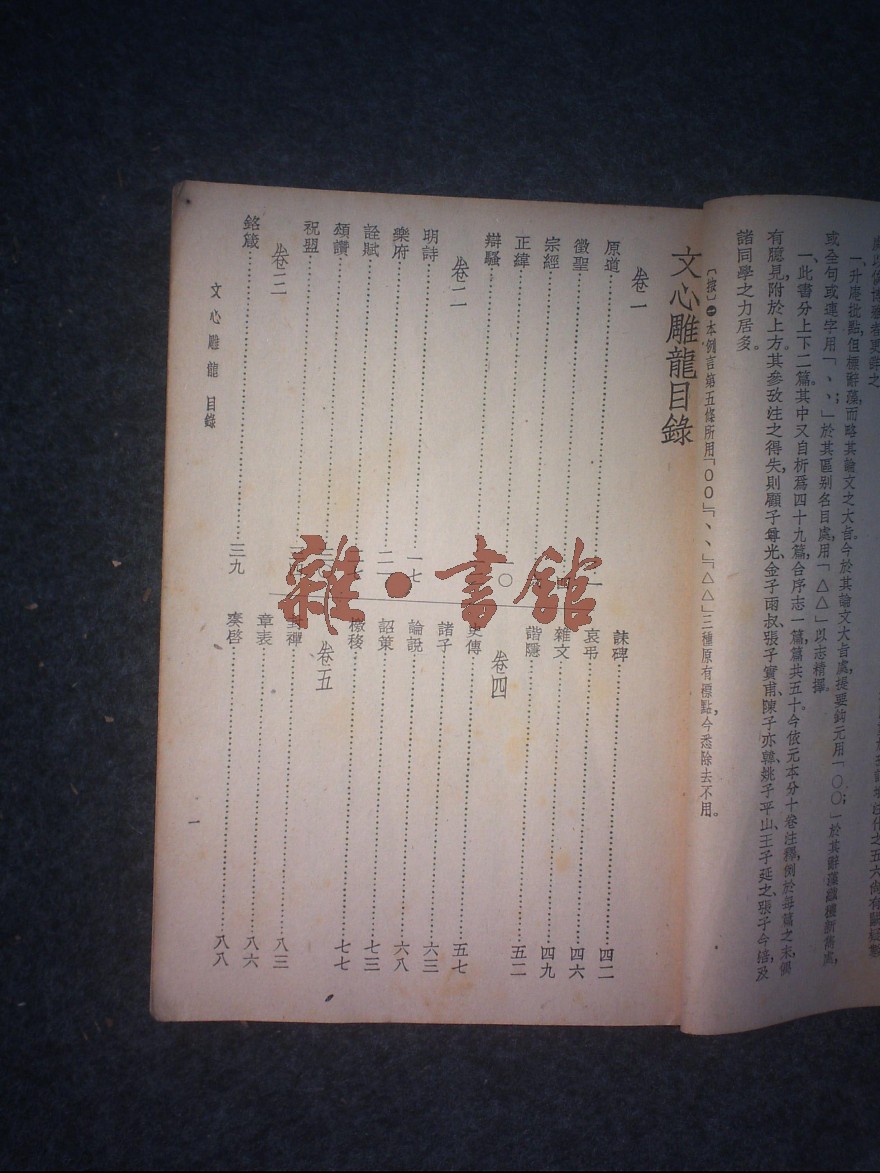 一、升庵批點但標辭藻而略其論文之大旨今於其論文大旨處提要鈎元用「○○」於其辭藻纖穠新雋處
或全句或連字用「、、」於其區別名目處用「△△」以志精擇
一、此書分上下二篇其中又自析爲四十九篇合序志一篇篇共五十今依元本分十卷注釋例於每篇之末偶
有臆見附於上方其參攷注之得失則顧子尊光、金子雨叔、張子實甫、陳子亦韓、姚子平山、王子延之、張子今涪及
諸同學之力居多。
〔按〕本例言第五條所用「○○」「、、」「△△」三種原有標點,今悉除去不用。
文心雕龍目錄
卷一
原道 一
徵聖 四
宗經
正緯
辯騷 一〇
卷二
明詩 一七
樂府
詮賦
頌讚
祝盟
卷三
銘箴 三九
誄碑 四二
哀弔 四六
雜文 四九
諧隱 五二
卷四
史傳 五七
諸子 六三
論說 六八
詔策 七三
檄移 七七
卷五
封禪 八三
章表 八六
奏啓 八八
文心雕龍 目錄
一
雜·書館